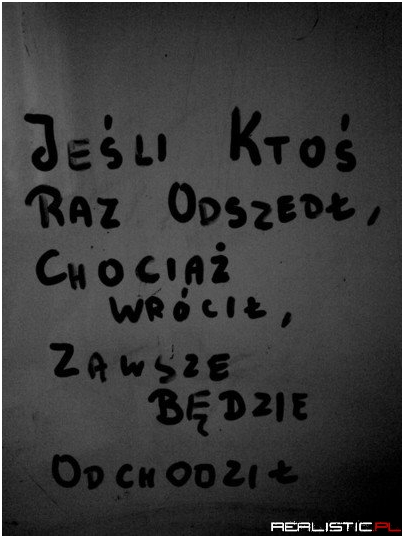 Jeśli Ktoś
Raz Odszedł,
Chociaż
wrócił,
Zawsze
Będzie
Odchodził
REALISTIC.PL